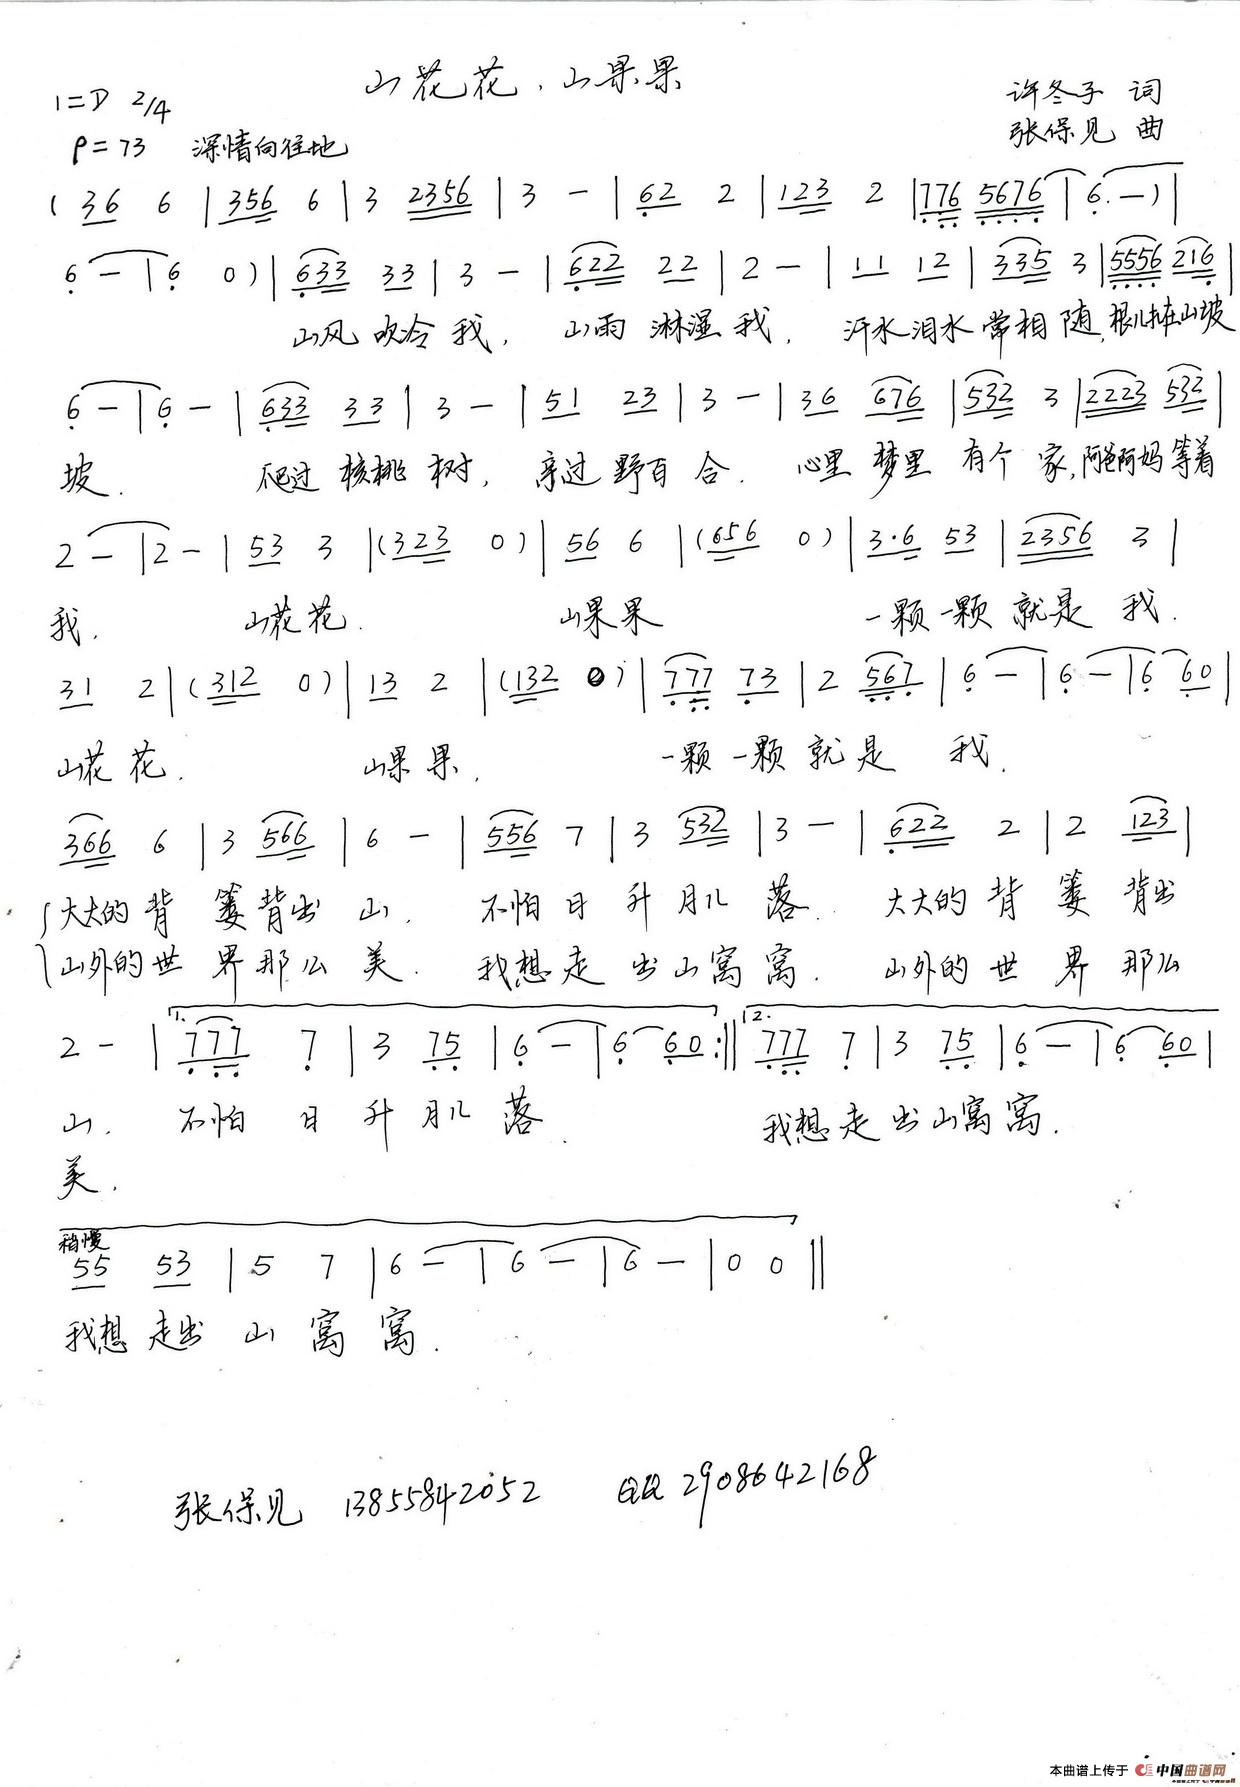 山花花、山果果
1=D 2/4
许冬子 词
张保见 曲
♩=73 深情向往地
( 36 6 | 356 6 | 3 2356 | 3 — | 62 2 | 123 2 | 776 5676 | 6. — ) |
6 — | 6 0 ) | 633 33 | 3 — | 622 22 | 2 — | 11 12 | 335 3 | 5556 216 |
山风 吹冷 我, 山雨 淋湿 我, 汗水 泪水 常相 随, 根儿扎在山坡
6 — | 6 — | 633 33 | 3 — | 51 23 | 3 — | 36 676 | 532 3 | 2223 532 |
坡. 爬过 核桃 树, 亲过 野百 合. 心里 梦里 有个 家, 阿爸阿妈 等着
2 — | 2 — | 53 3 | ( 323 0 ) | 56 6 | ( 656 0 ) | 3·6 53 | 2356 3 |
我. 山花花. 山果果 一颗 一颗 就是 我.
31 2 | ( 312 0 ) | 13 2 | ( 132 0 ) | 777 73 | 2 567 | 6 — | 6 — | 6 60 |
山花 花. 山果 果. 一颗 一颗 就是 我.
366 6 | 3 566 | 6 — | 556 7 | 3 532 | 3 — | 622 2 | 2 123 |
大大的 背 篓 背出 山. 不怕 日 升 月儿 落. 大大的 背 篓 背出
山外的 世 界 那么 美. 我想 走 出 山窝 窝. 山外的 世 界 那么
2 — | 1. 777 7 | 3 75 | 6 — | 6 60 :|| 2. 777 7 | 3 75 | 6 — | 6 60 |
山. 不怕 日 升 月儿 落. 我想 走 出 山窝 窝.
美.
稍慢
55 53 | 5 7 | 6 — | 6 — | 6 — | 0 0 ||
我想 走出 山 窝 窝.
张保见 13855842052 QQ 2908642168
本曲谱上传于 中国曲谱网